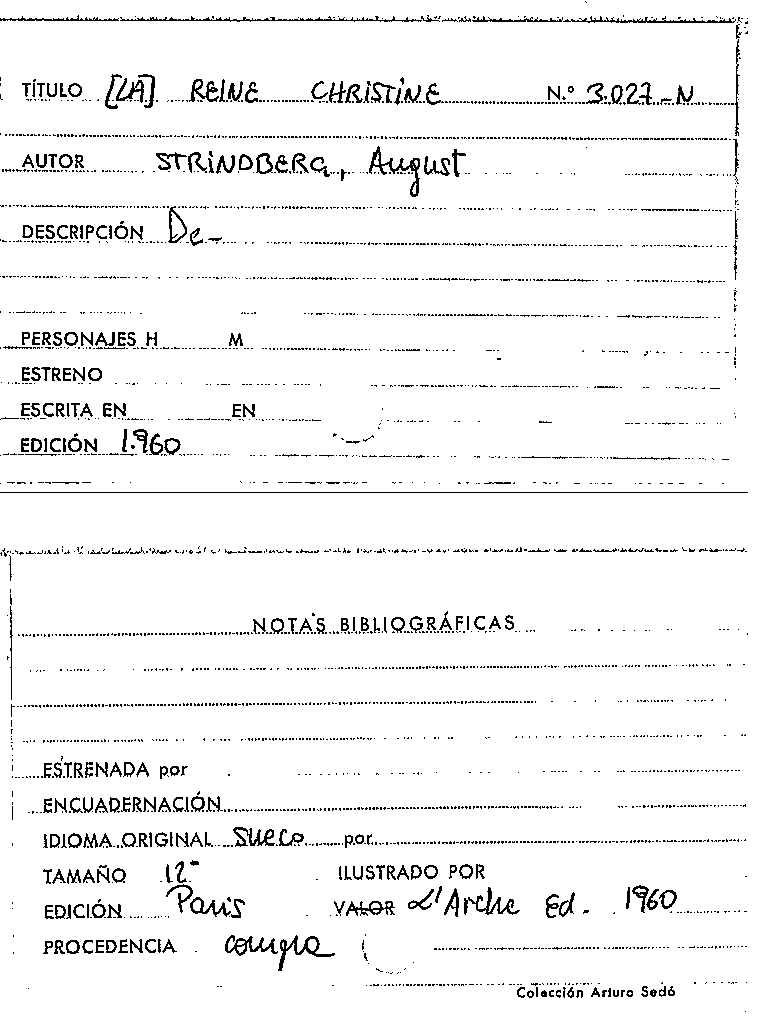 TÍTULO [LA] REINE CHRISTINE N.º 3.027-N
AUTOR STRINDBERG, August
DESCRIPCIÓN De-
PERSONAJES H M
ESTRENO
ESCRITA EN EN
EDICIÓN 1.960
NOTAS BIBLIOGRÁFICAS
ESTRENADA por
ENCUADERNACIÓN
IDIOMA ORIGINAL Sueco por
TAMAÑO 12º ILUSTRADO POR
EDICIÓN Paris VALOR L'Arche Ed. 1960
PROCEDENCIA compra
Colección Arturo Sedó